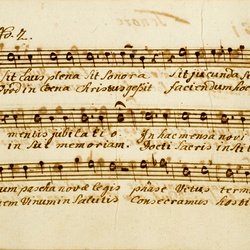 No. 2.
Sit laus plena sit Sonora sit jucunda si
quod in Cœna Christus geßit faciendum hoc
mentis jubilatio. In hac mensa novi
in sui memoriam. Docti Sacris insti
um pascha novæ legis phase Vetus ter
nem Vinum in Salutis Consecramus hosti